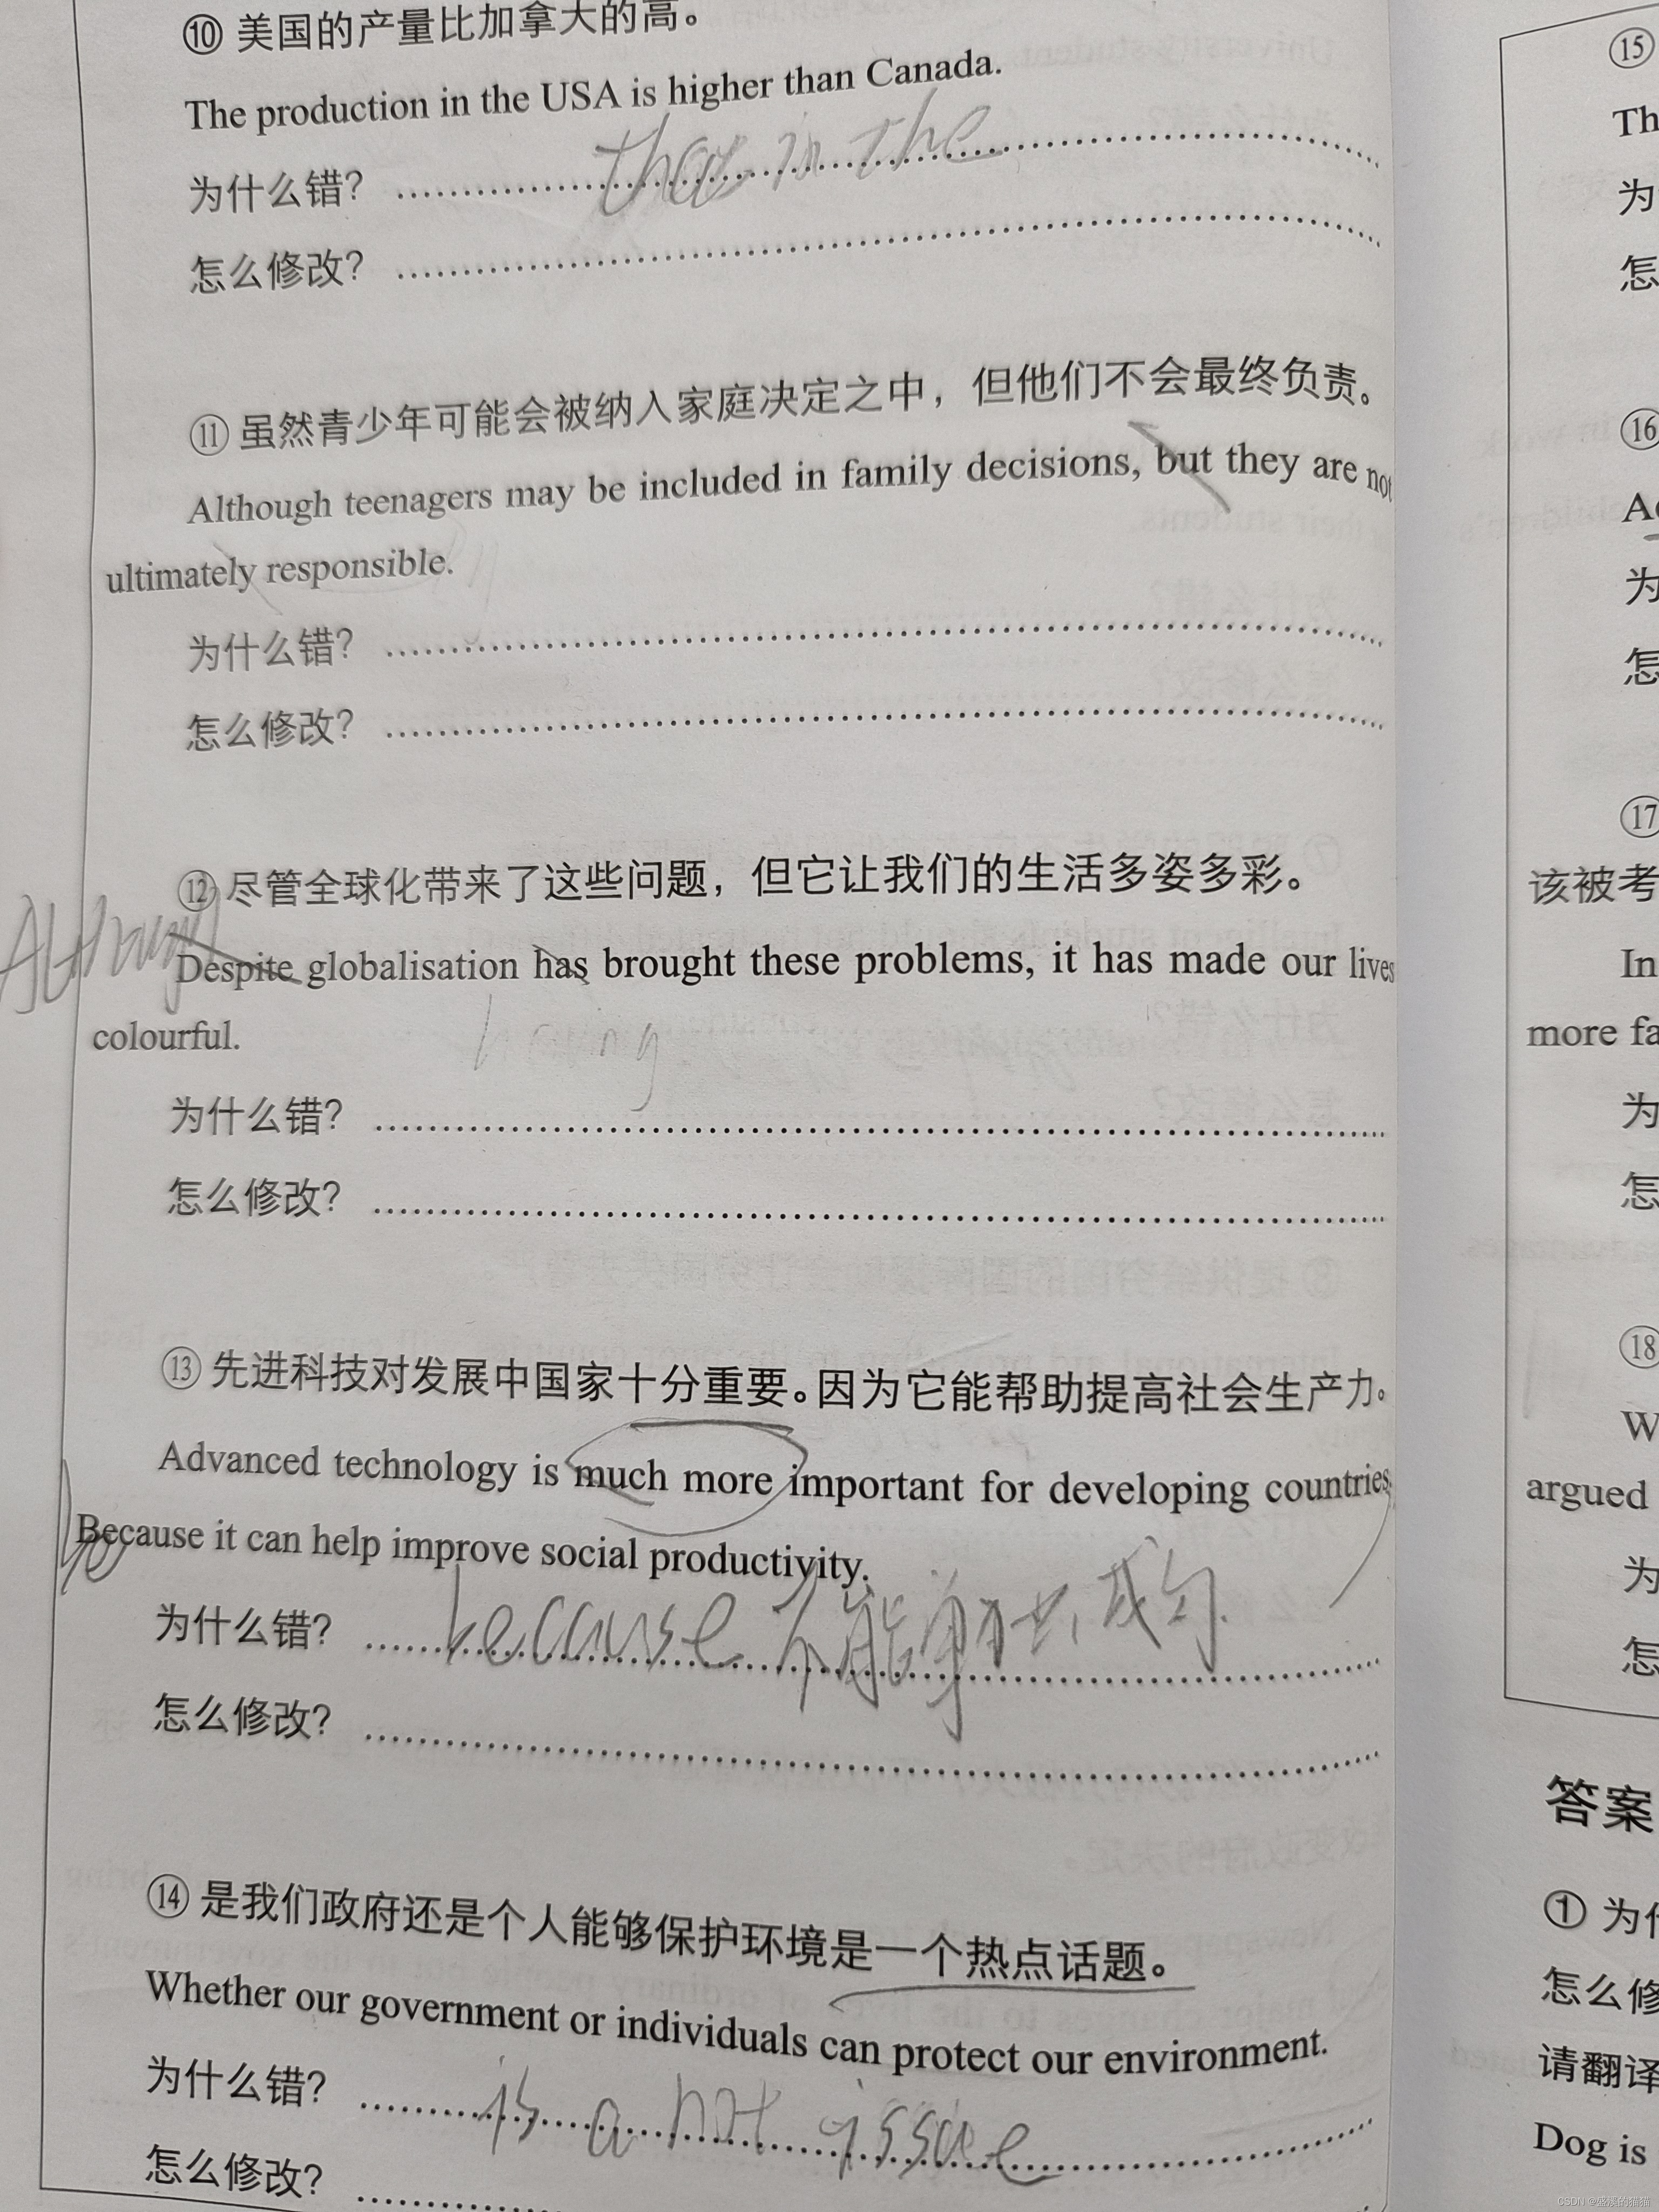 ⑩ 美国的产量比加拿大的高。
The production in the USA is higher than Canada.
that in the
为什么错?
怎么修改?
⑪ 虽然青少年可能会被纳入家庭决定之中，但他们不会最终负责。
Although teenagers may be included in family decisions, but they are not
ultimately responsible.
为什么错?
怎么修改?
⑫ 尽管全球化带来了这些问题，但它让我们的生活多姿多彩。
Although
Despite globalisation has brought these problems, it has made our lives
colourful.
having
为什么错?
怎么修改?
⑬ 先进科技对发展中国家十分重要。因为它能帮助提高社会生产力。
Advanced technology is much more important for developing countries
be
Because it can help improve social productivity.
为什么错? because 不能单独成句.
怎么修改?
⑭ 是我们政府还是个人能够保护环境是一个热点话题。
Whether our government or individuals can protect our environment.
为什么错? is a hot issue
怎么修改?
⑮
Th
为
怎
⑯
为
怎
⑰
该被考
In
more fa
为
怎
⑱
W
argued
为
怎
答案
① 为什
怎么修
请翻译
Dog is
CSDN @盛溪的猫猫